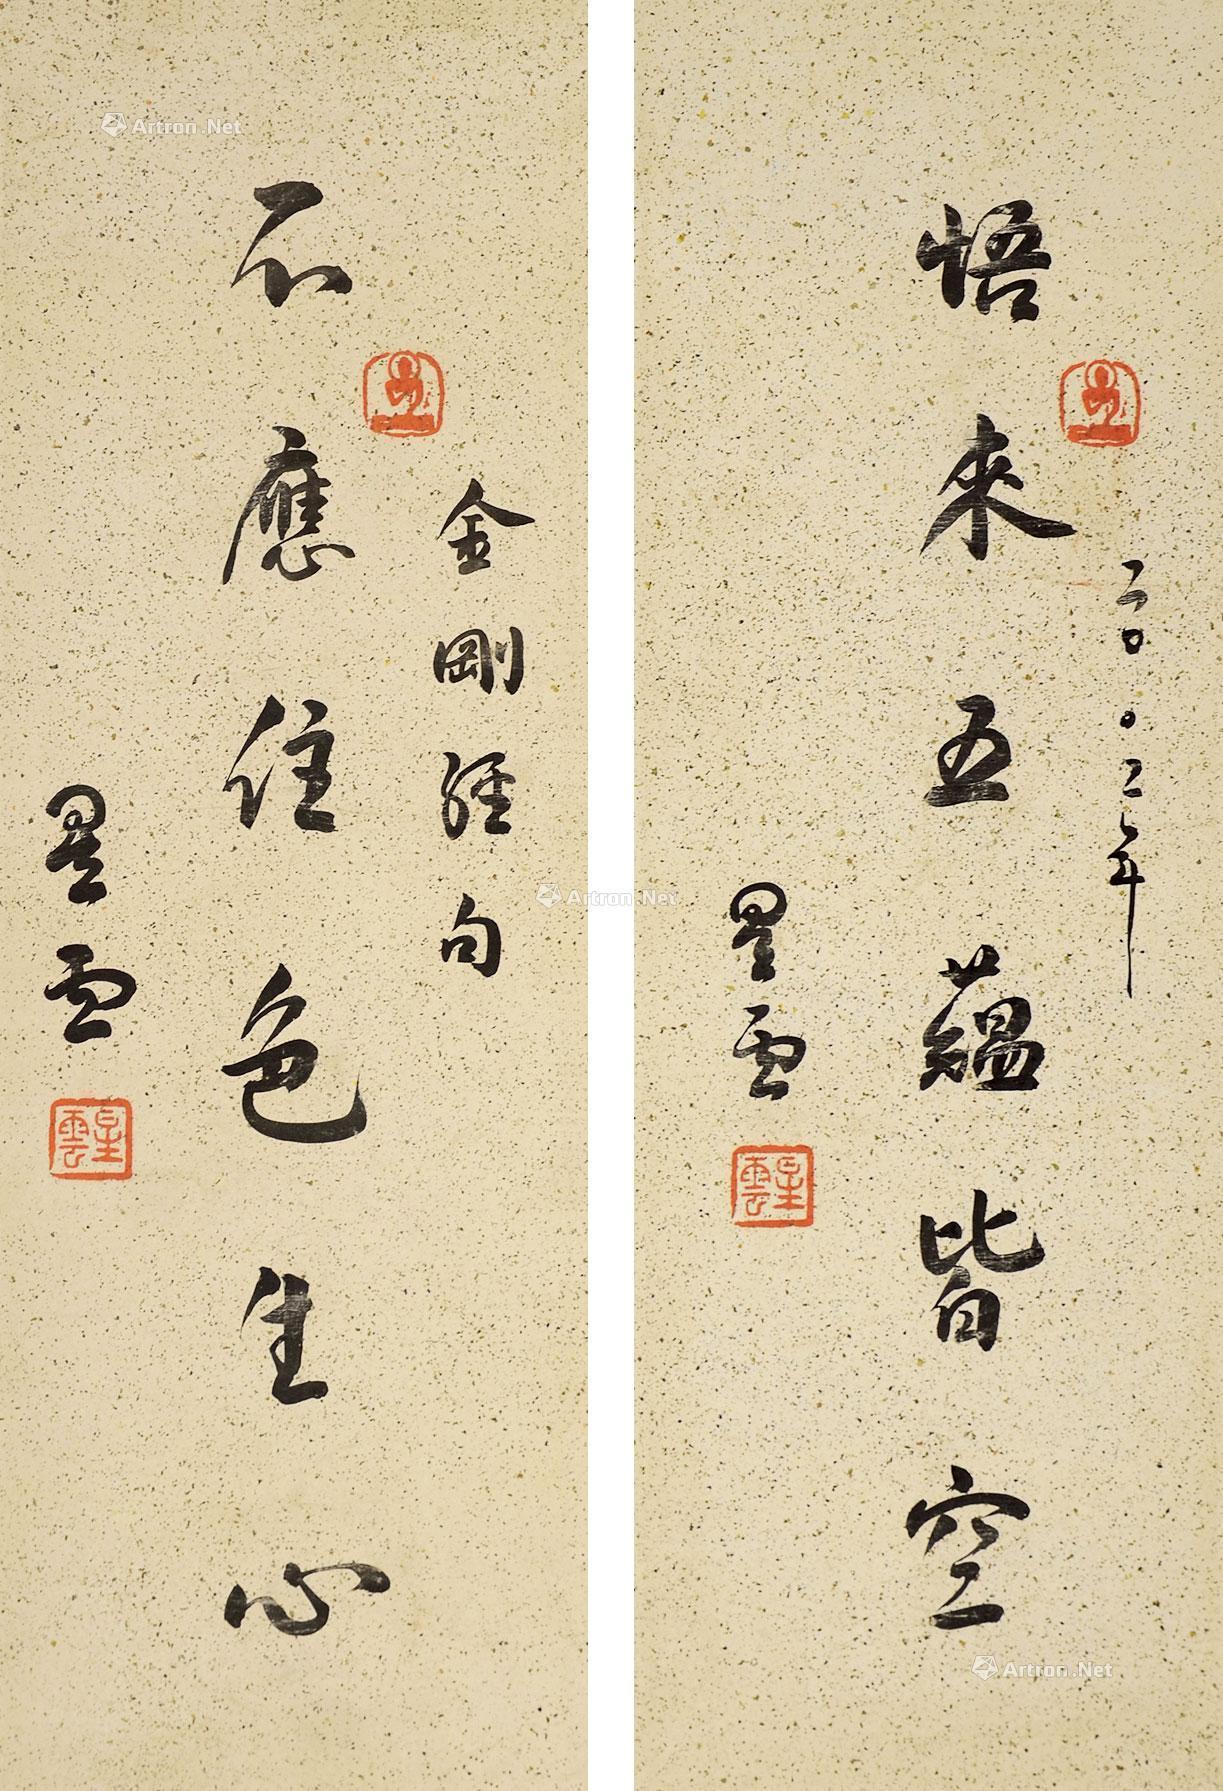 二〇〇二年
悟來五蘊皆空
星雲
星雲
金剛經句
不應住色生心
星雲
星雲
Artron.Net
Artron.Net
Artron.Net